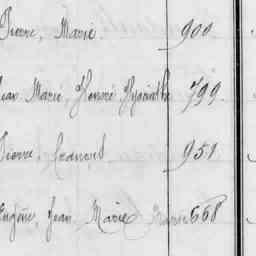 Pierre, Marie. 900.
Jean Marie, Honoré Hyacinthe 799.
Pierre, François 951
Eugène, Jean Marie 668